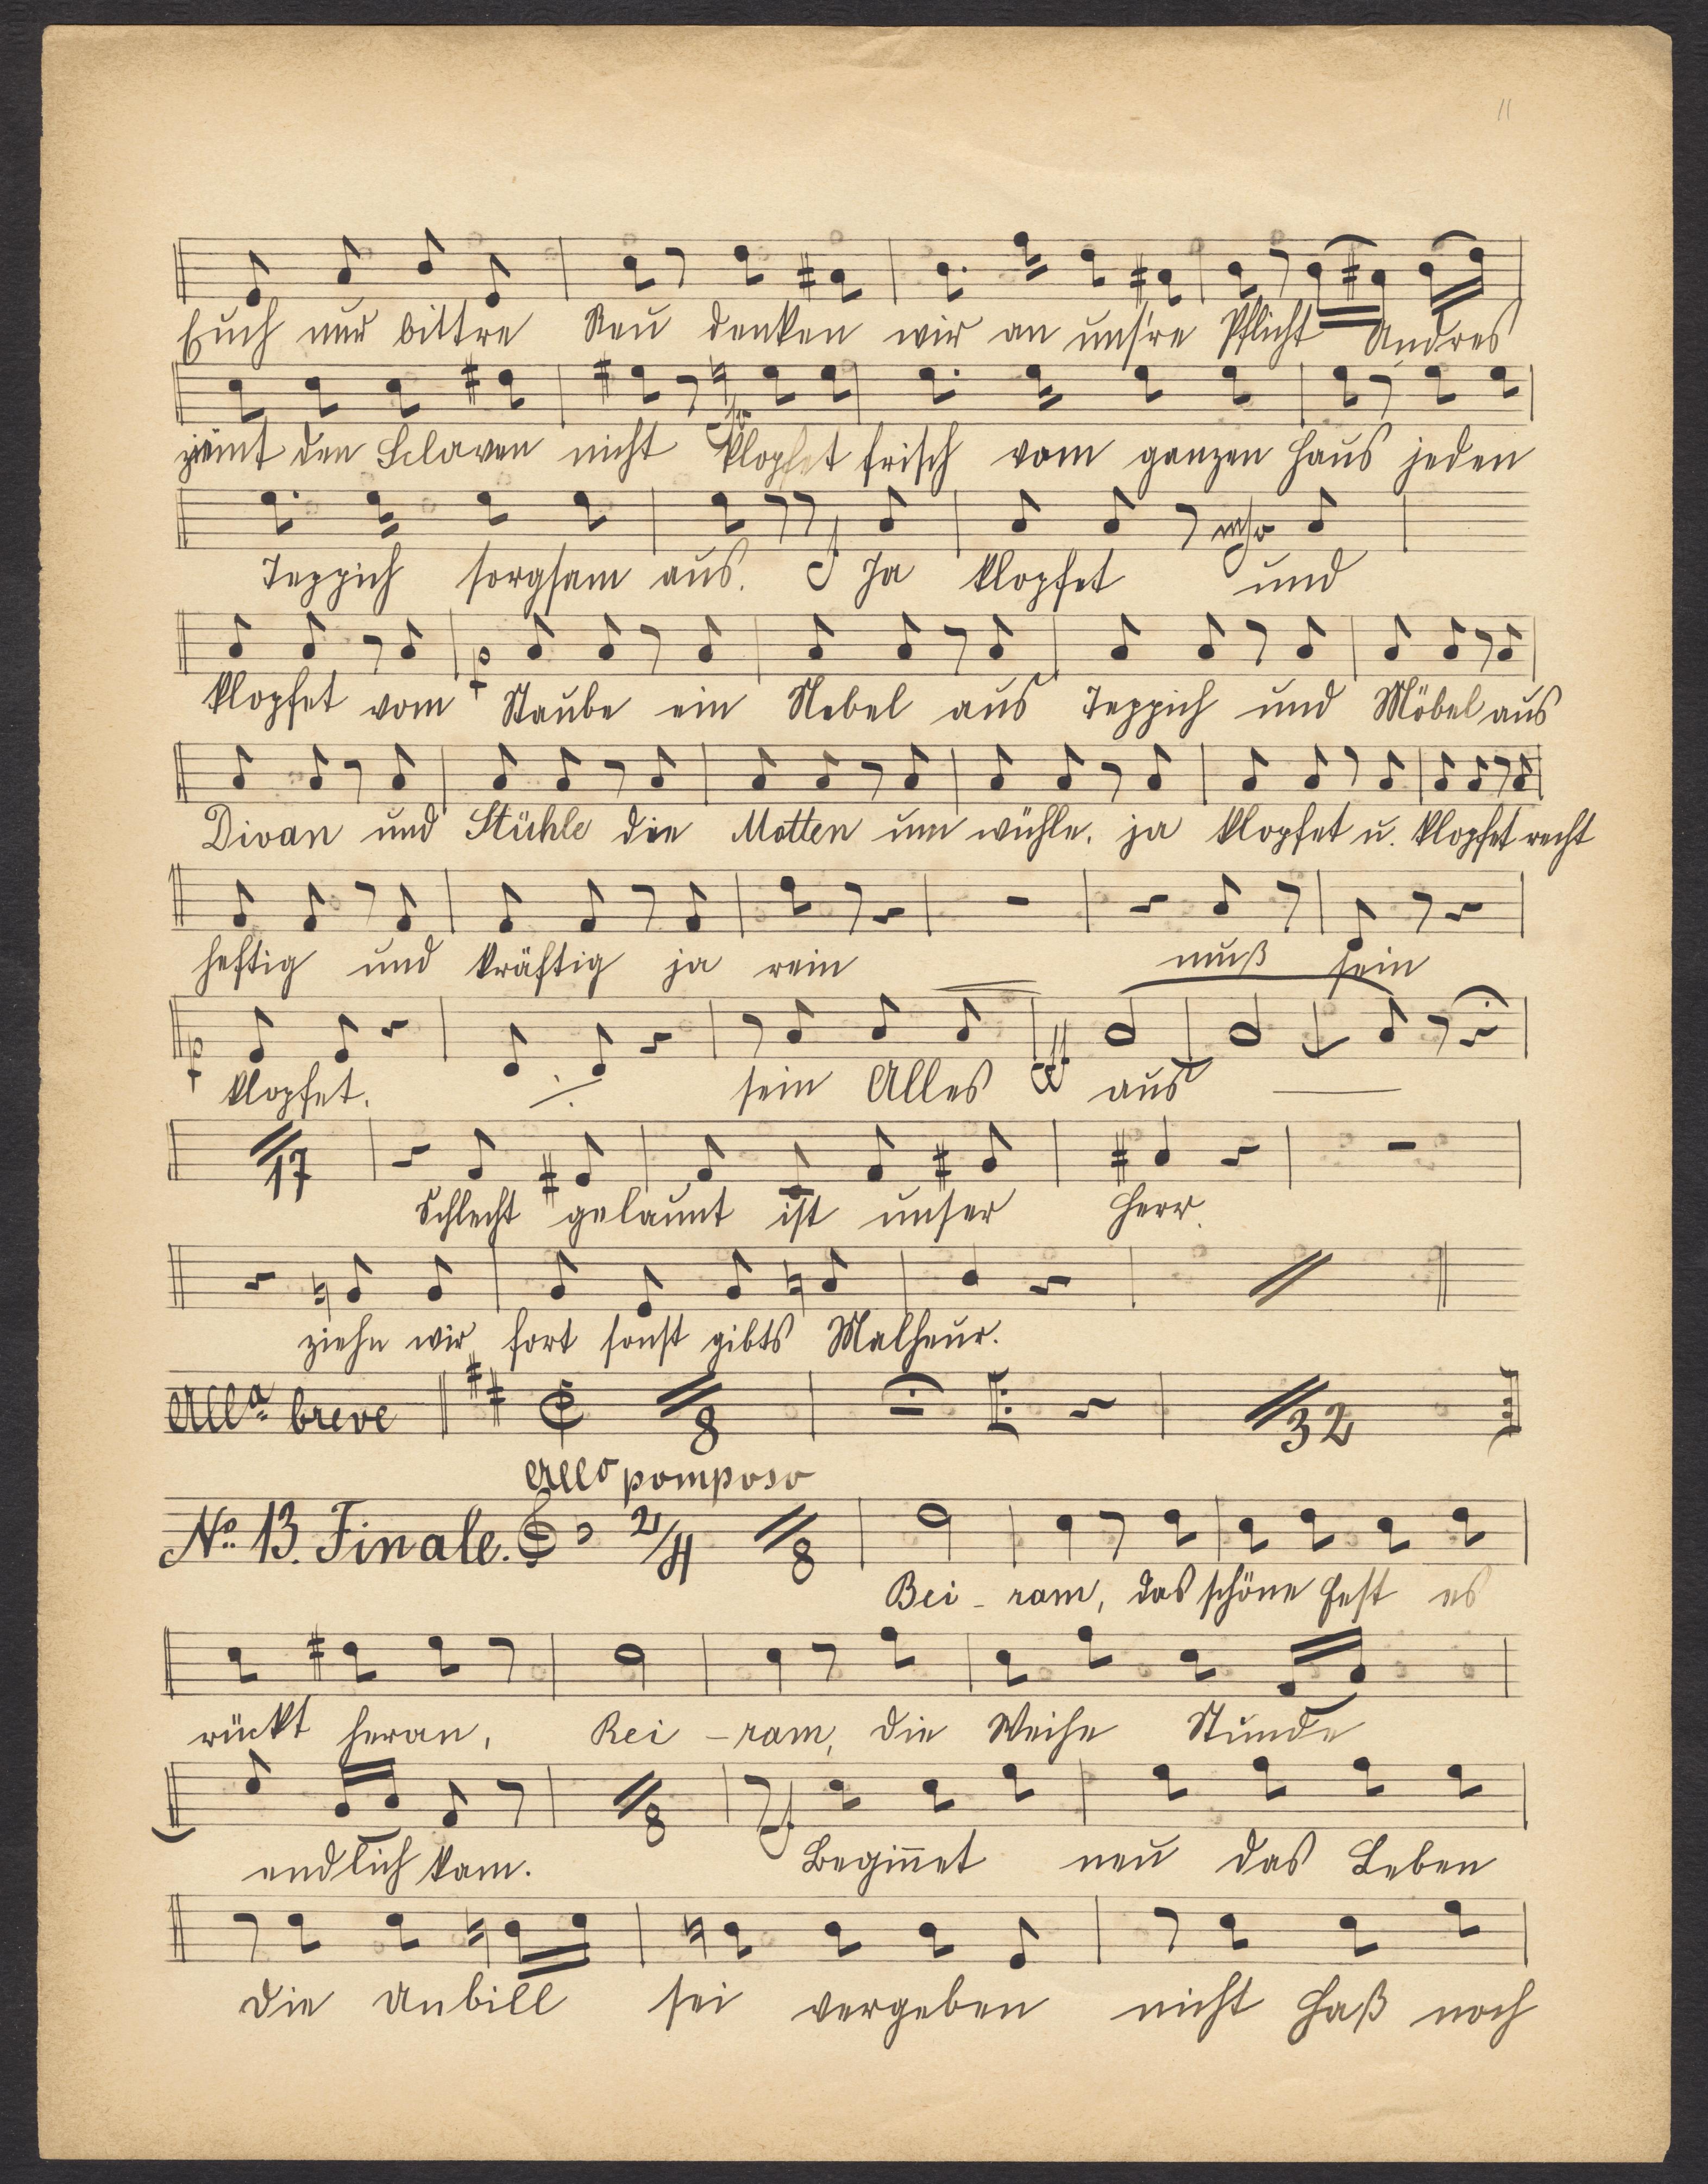 11
Euch nur bittre Reu denken wir an uns're Pflicht Andres
ziemt den Sclaven nicht klopfet frisch vom ganzen Haus jeden
Teppich sorgsam aus. f Ja klopfet und
klopfet vom Staube ein Nebel aus Teppich und Möbel aus
Divan und Stühle die Motten um wühle. ja klopfet u. klopfet recht
heftig und kräftig ja rein muß sein
p klopfet. ./. sein Alles ff aus
17
Schlecht gelaunt ist unser Herr.
ziehn wir fort sonst gibts Malheur.
Alla breve 8 32
Allo pomposo
No. 13. Finale. 2/4 8
Bei - ram, das schöne Fest es
rückt heran, Bei - ram, die Weihe Stunde
8
endlich kam. f Begin̄et neu das Leben
die Unbill sei vergeben nicht Haß noch